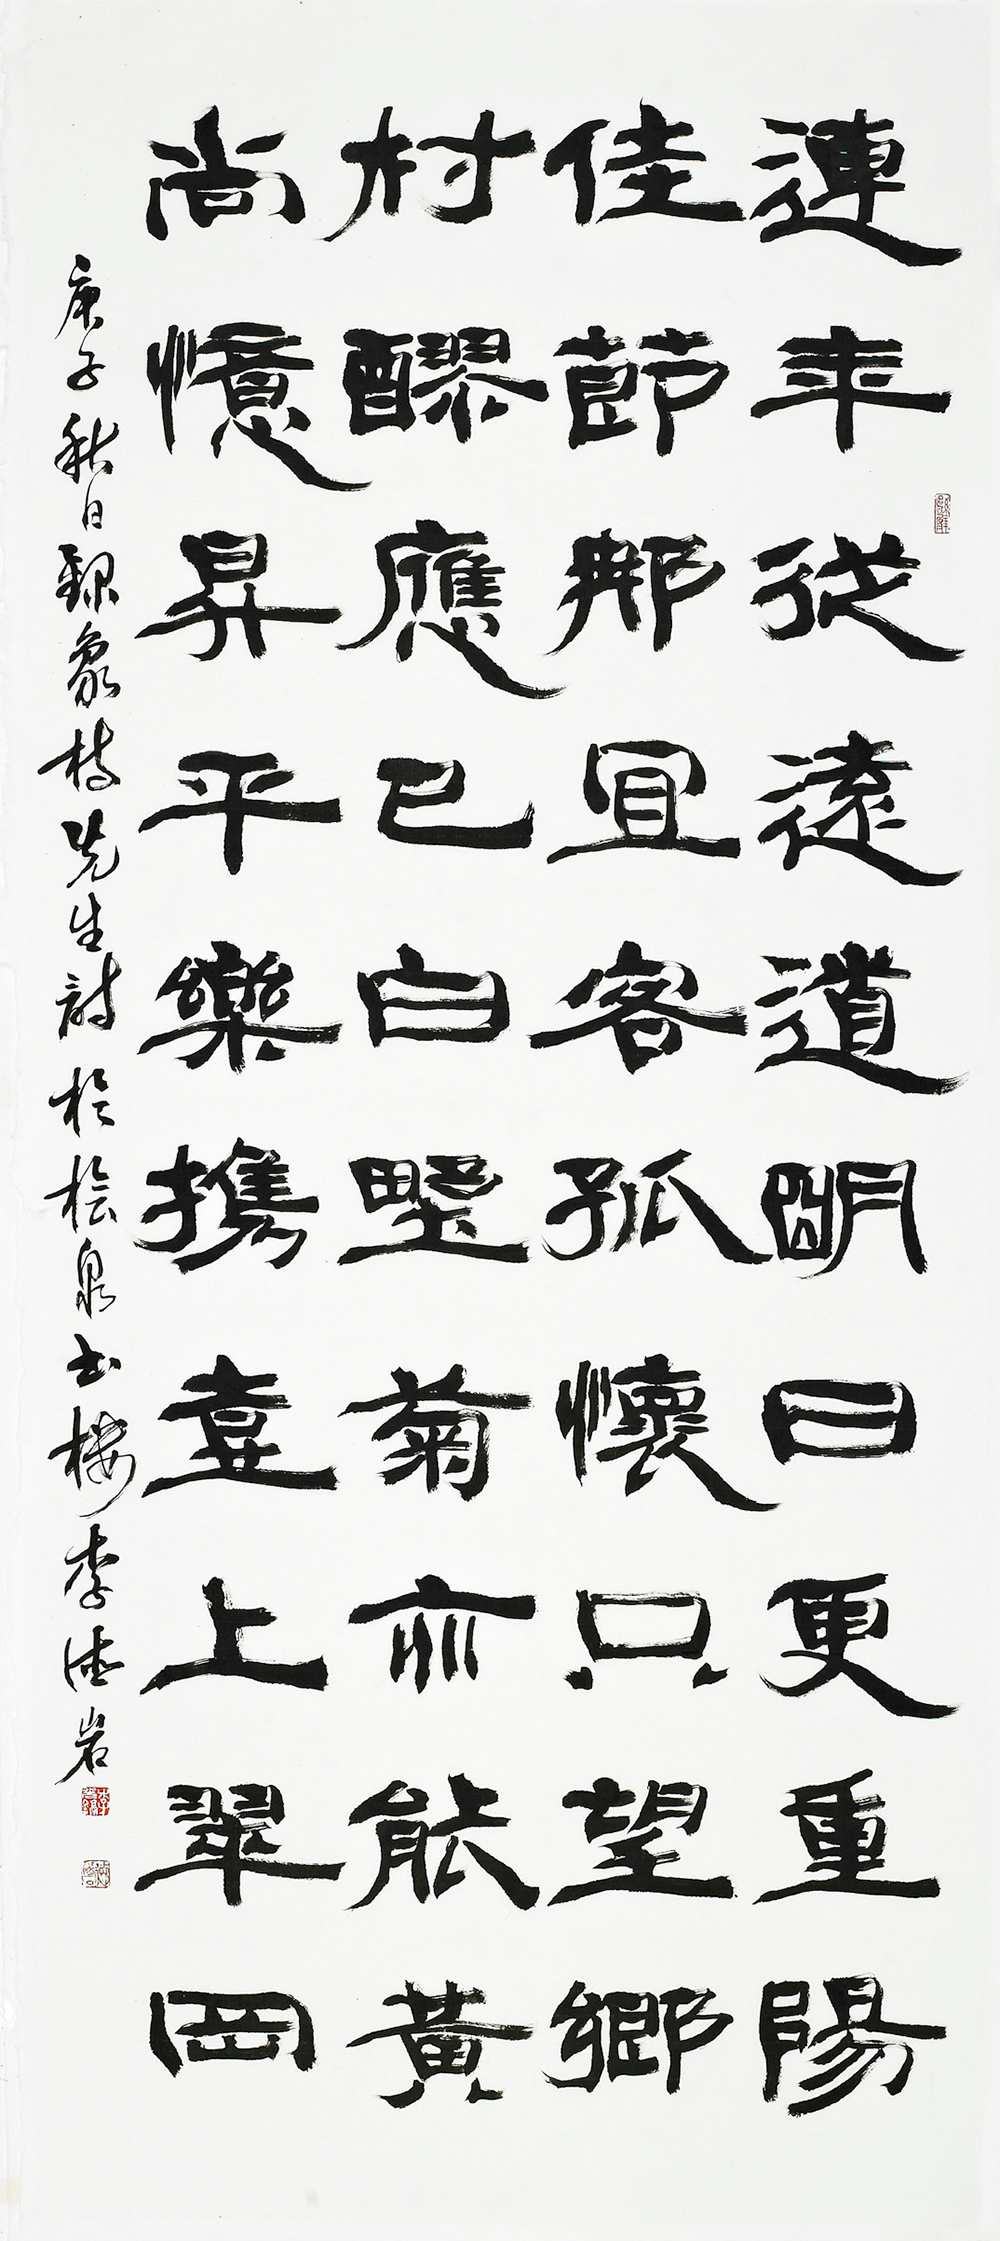 連年從遠道明日更重陽
佳節那宜客孤懷只望鄉
村醪應已白野菊亦能黃
尚憶昇平樂攜壺上翠岡
庚子秋日録象枝先生詩於桧泉书楼李德岩